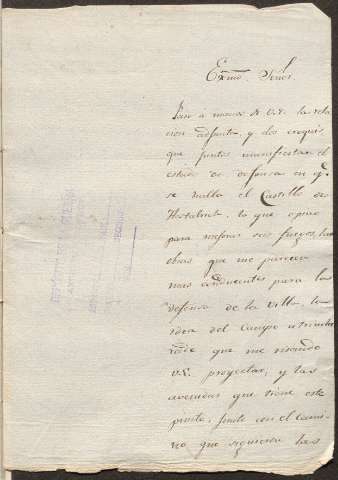 Exmo. Señor
Paso a manos de V.E. la rela
cion adjunta, y dos croquis
que juntos manifiestan el
estado de defensa en qe.
se halla el Castillo de
Hostalrich, lo que opino
para mejorar sus fuegos, las
obras que me parecen
mas conducentes para la
defensa de la Villa, la
idea del Campo atrinche
rado que me mando
V.E. proyectar, y las
avenidas que tiene este
punto, junto con el cami
no que siguieron las